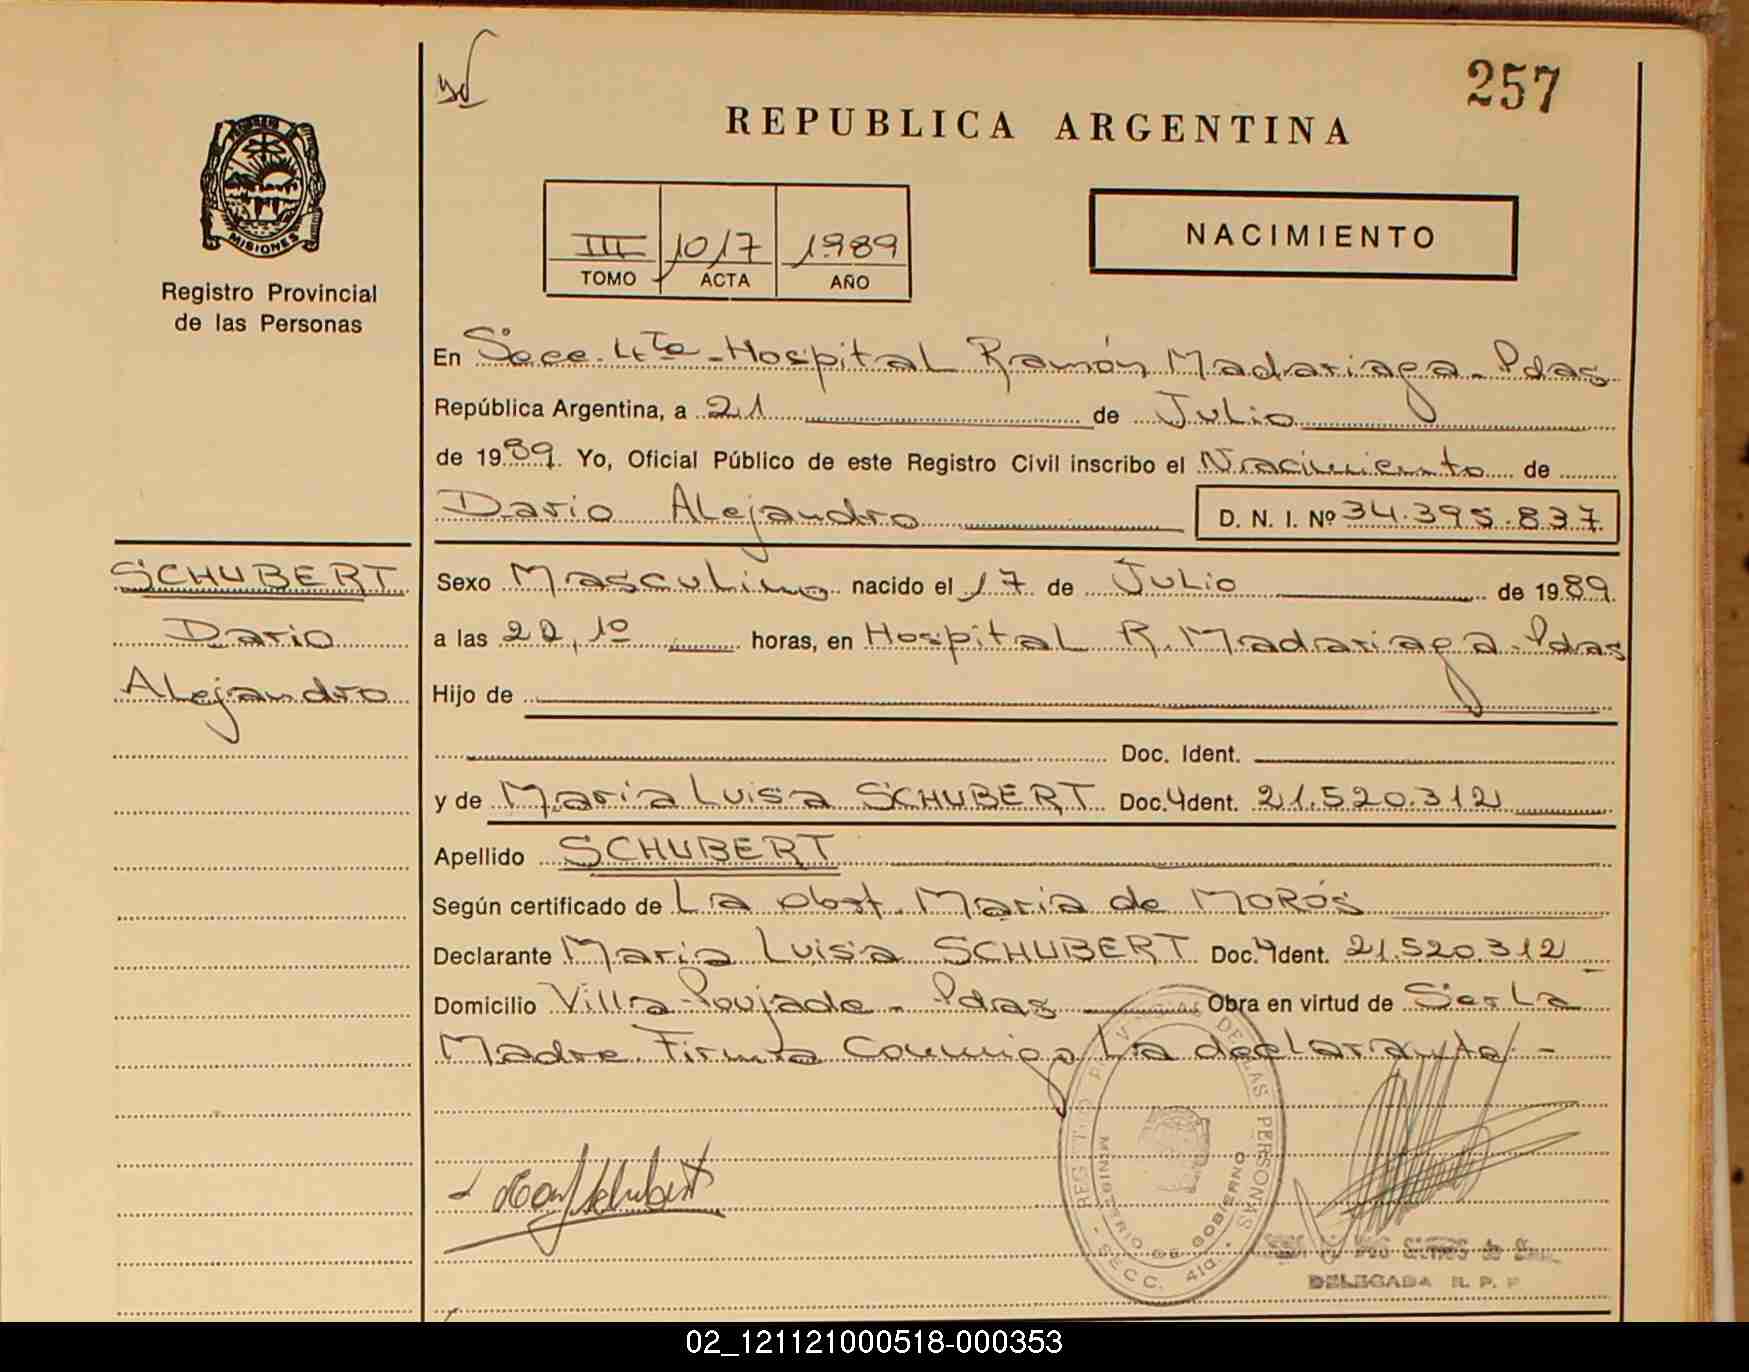 257
REPUBLICA ARGENTINA
MISIONES
Registro Provincial
de las Personas
NACIMIENTO
III 1017 1989
TOMO ACTA AÑO
En Secc. 4ta - Hospital Ramón Madariaga - Pdas
República Argentina, a 21 de Julio
de 1989. Yo, Oficial Público de este Registro Civil inscribo el Nacimiento de
Dario Alejandro D. N. I. Nº 34.395.837
SCHUBERT
Dario
Alejandro
Sexo Masculino nacido el 17 de Julio de 1989
a las 22,10 horas, en Hospital R. Madariaga - Pdas
Hijo de
Doc. Ident.
y de María Luisa SCHUBERT Doc. Ident. 21.520.312
Apellido SCHUBERT
Según certificado de La Obst. Maria de MOROS
Declarante María Luisa SCHUBERT Doc. Ident. 21.520.312
Domicilio Villa Poujade - Pdas Obra en virtud de Ser La
Madre. Firma Conmigo La declarante -
MINISTERIO DE GOBIERNO
DE LAS PERSONAS
SECC. 4ta.
Schubert
DELEGADA R. P. P
02_121121000518-000353